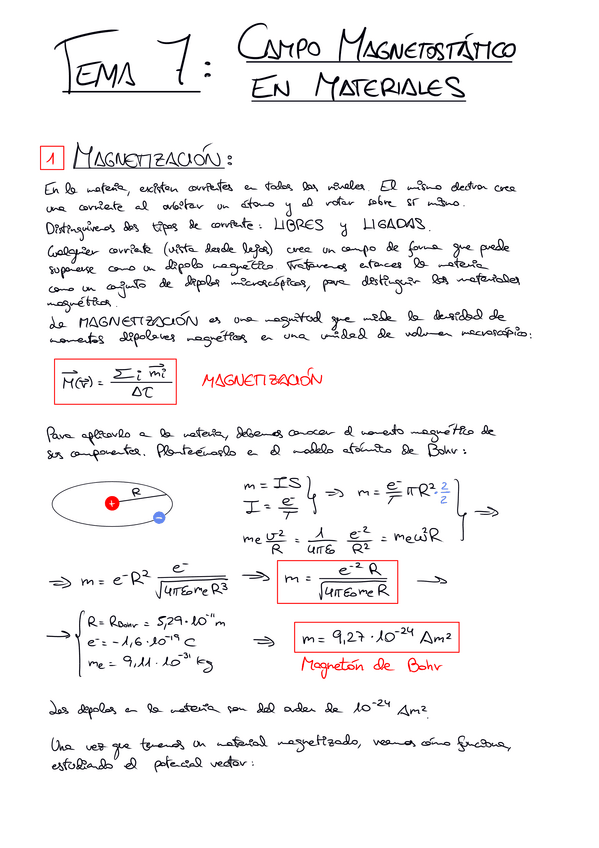 TEMA 7: CAMPO MAGNETOSTÁTICO
EN MATERIALES
1 MAGNETIZACIÓN:
En la materia, existen corrientes en todos los niveles. El mismo electron crea
una corriente al orbitar un átomo y al rotar sobre sí mismo.
Distinguiremos dos tipos de corriente: LIBRES y LIGADAS.
Cualquier corriente (vista desde lejos) crea un campo de forma que puede
suponerse como un dipolo magnético. Trataremos entonces la materia
como un conjunto de dipolos microscópicos, para distinguir los materiales
magnéticos.
La MAGNETIZACIÓN es una magnitud que mide la densidad de
momentos dipolares magnéticos en una unidad de volumen macroscópico:
M⃗(r⃗) = Σi m⃗i / Δτ MAGNETIZACIÓN
Para aplicarlo a la materia, debemos conocer el momento magnético de
sus componentes. Planteémoslo en el modelo atómico de Bohr:
R
+
−
m = IS
I = e⁻/T
⇒ m = e⁻/T πR² · 2/2
me v²/R = 1/4πε₀ e⁻²/R² = meω²R
⇒
⇒ m = e⁻R² e⁻/√(4πε₀meR³) ⇒ m = e⁻²R/√(4πε₀meR) →
→ R = RBohr = 5,29·10⁻¹¹ m
e⁻ = −1,6·10⁻¹⁹ C
me = 9,11·10⁻³¹ kg
⇒ m = 9,27·10⁻²⁴ Am²
Magnetón de Bohr
Los dipolos en la materia son del orden de 10⁻²⁴ Am².
Una vez que tenemos un material magnetizado, veamos cómo funciona,
estudiando el potencial vector: